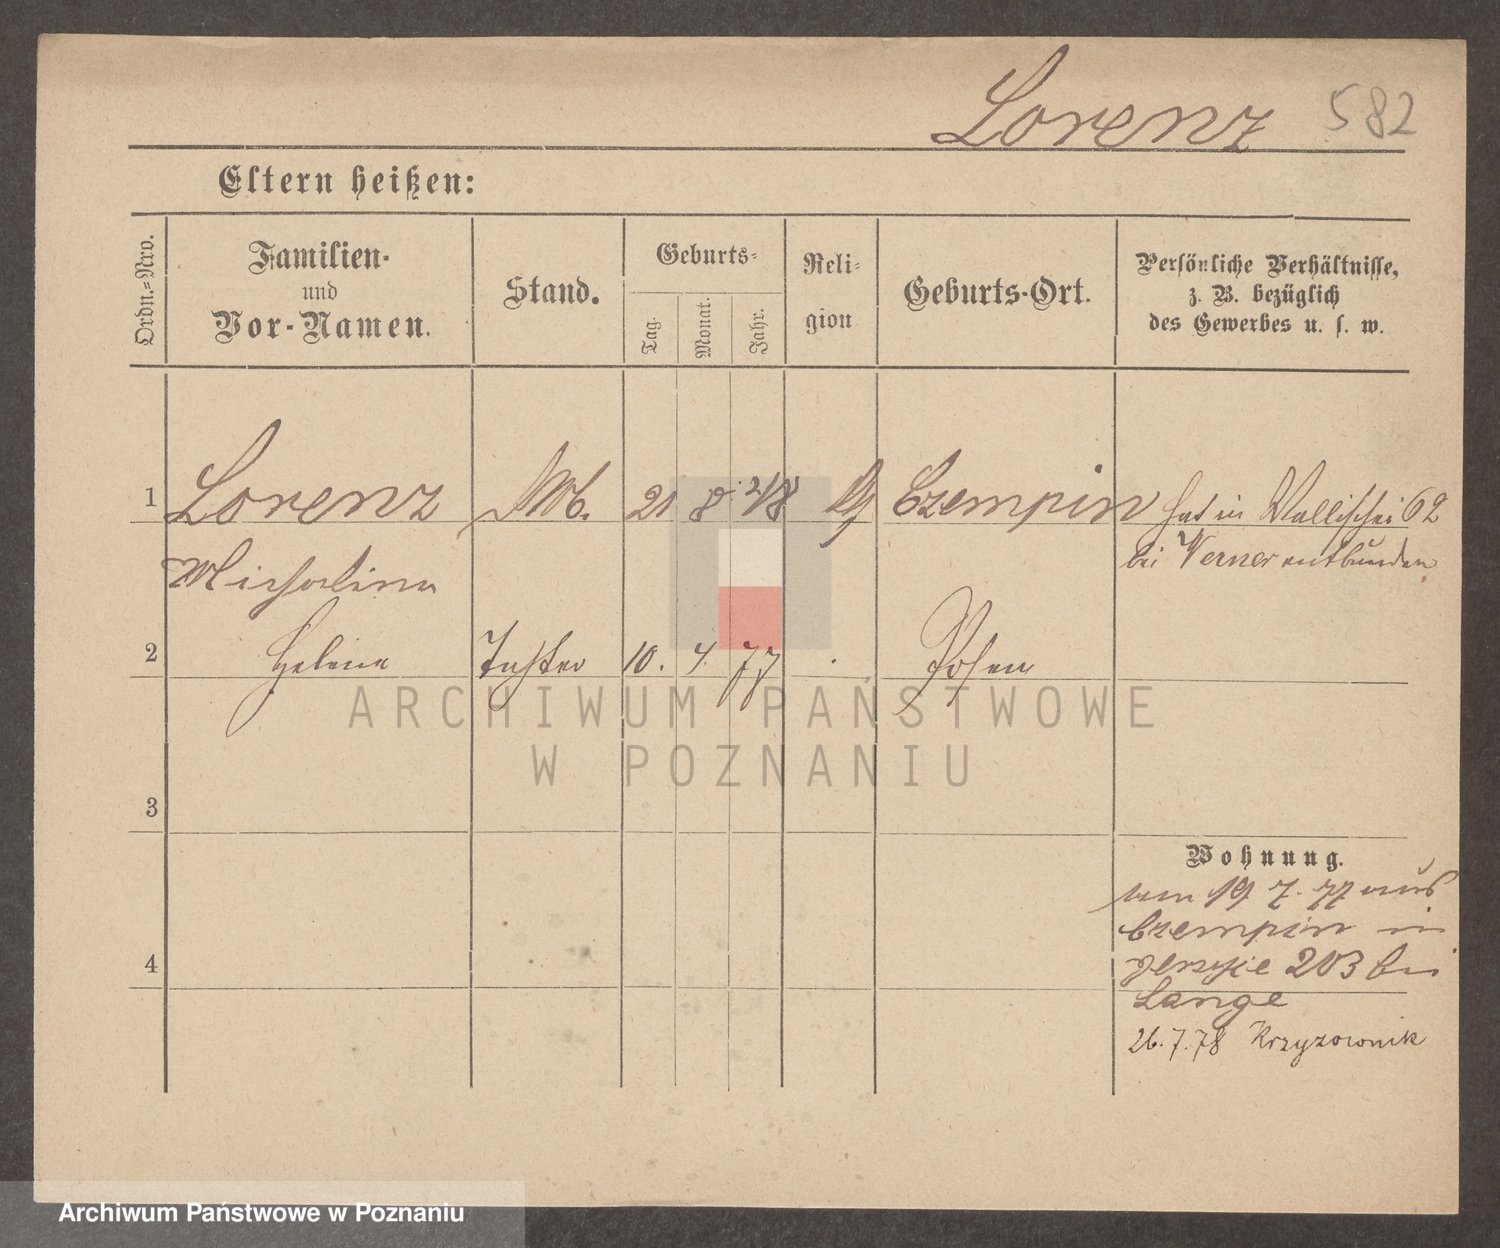 Lorenz 582
Eltern heißen:
Ordn.=Nro.
Familien-
und
Vor-Namen.
Stand.
Geburts-
Tag.
Monat.
Jahr.
Reli-
gion
Geburts-Ort.
Persönliche Verhältnisse,
z. B. bezüglich
des Gewerbes u. s. w.
1 Lorenz M. 21 8 Czempin hat in Wallischei 62
Michalina bei Verner entbunden
2 Helena Tochter 10. 4. 77 Posen
ARCHIWUM PAŃSTWOWE
W POZNANIU
3
Wohnung.
19 7. 77 aus
Czempin in
203 bei
4
Lange
26. 7. 78 Krzyzownik
Archiwum Państwowe w Poznaniu